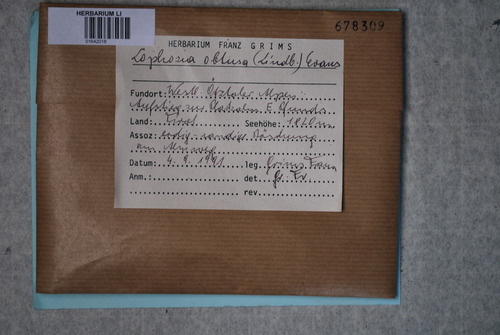 HERBARIUM LI
678309
HERBARIUM FRANZ GRIMS
Lophozia obtusa (Lindb.) Evans
Fundort: Westl. Ötztaler Alpen:
Aufstieg zum
Land: Tirol Seehöhe:
Assoz: erdig-sandige Böschung
am
Datum: 4.9.1981 leg. Grims Franz
Anm.: det. Gr. Fr.
rev.